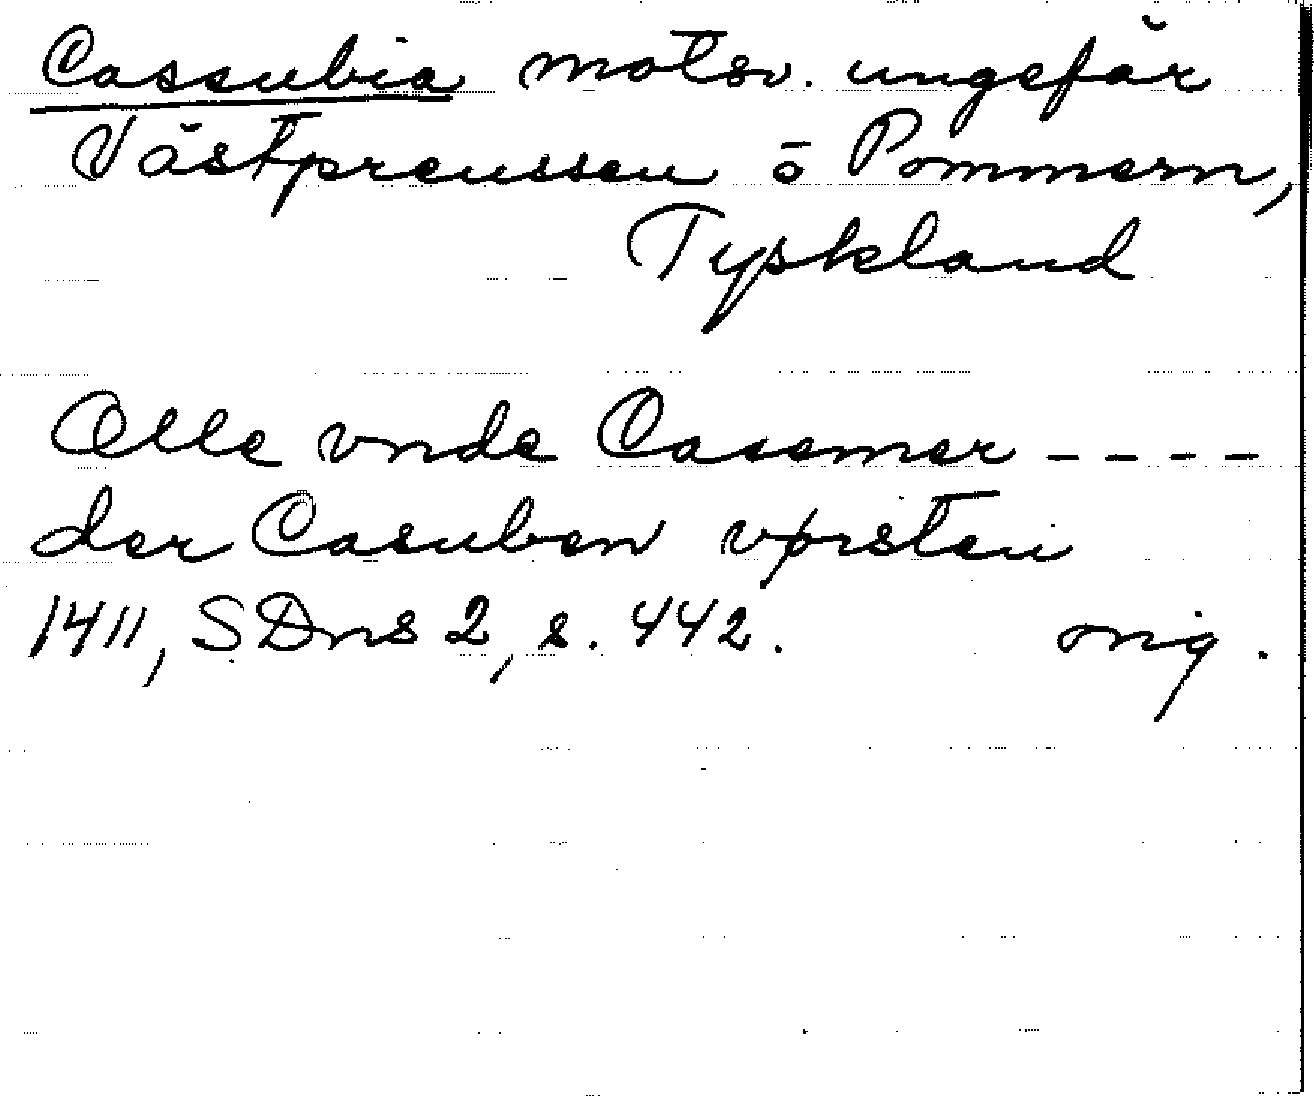 Cassubia motsv. ungefär
Västpreussen ö Pommern,
Tyskland
Alle vnde Casemer ----
der Casuben vorsten
1411, SDns 2, s. 442. orig.